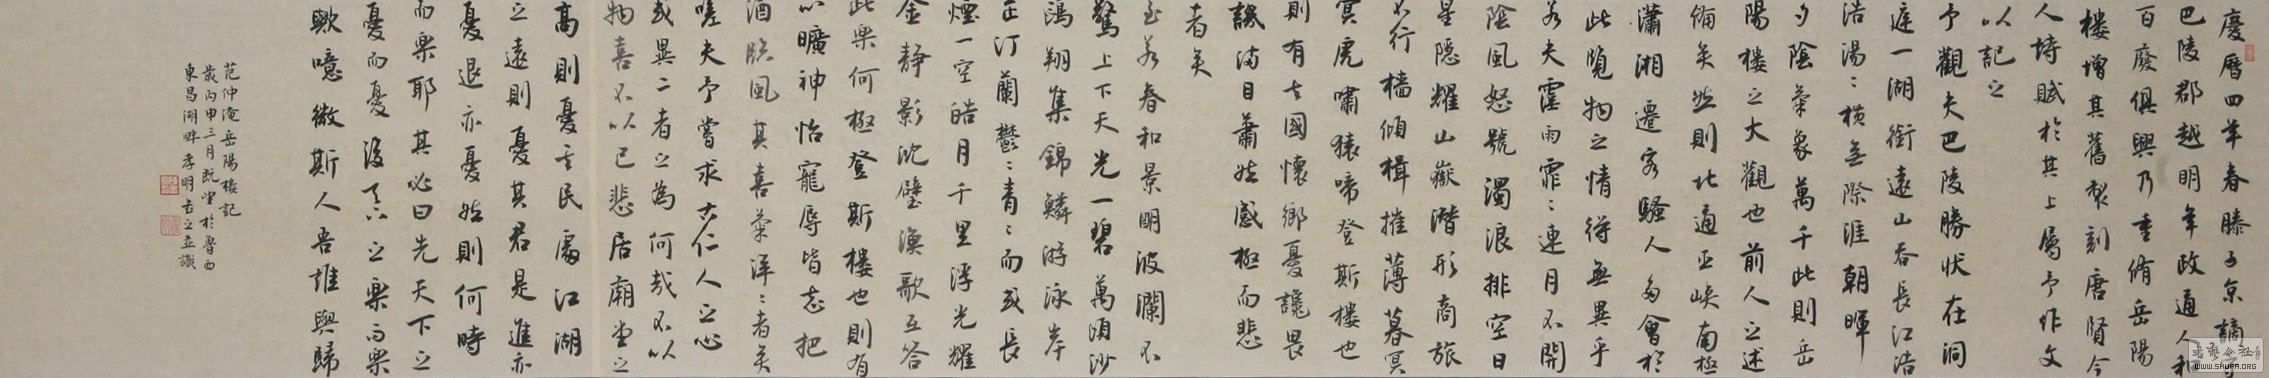 慶曆四年春滕子京謫守
巴陵郡越明年政通人和
百廢俱興乃重脩岳陽
樓增其舊制刻唐賢今
人詩賦於其上屬予作文
以記之
予觀夫巴陵勝狀在洞
庭一湖銜遠山吞長江浩
浩湯湯橫無際涯朝暉
夕陰氣象萬千此則岳
陽樓之大觀也前人之述
備矣然則北通巫峽南極
瀟湘遷客騷人多會於
此覽物之情得無異乎
若夫霪雨霏霏連月不開
陰風怒號濁浪排空日
星隱耀山嶽潛形商旅
不行檣傾楫摧薄暮冥
冥虎嘯猿啼登斯樓也
則有去國懷鄉憂讒畏
譏滿目蕭然感極而悲
者矣
至若春和景明波瀾不
驚上下天光一碧萬頃沙
鷗翔集錦鱗游泳岸
芷汀蘭鬱鬱青青而或長
煙一空皓月千里浮光耀
金靜影沈璧漁歌互答
此樂何極登斯樓也則有
心曠神怡寵辱皆忘把
酒臨風其喜氣洋洋者矣
嗟夫予嘗求古仁人之心
或異二者之為何哉不以
物喜不以己悲居廟堂之
高則憂其民處江湖
之遠則憂其君是進亦
憂退亦憂然則何時
而樂耶其必曰先天下之
憂而憂後天下之樂而樂
歟噫微斯人吾誰與歸
范仲淹岳陽樓記
歲丙申三月既望於魯西
東昌湖畔李明吉之並識
WWW.SHUFA.ORG